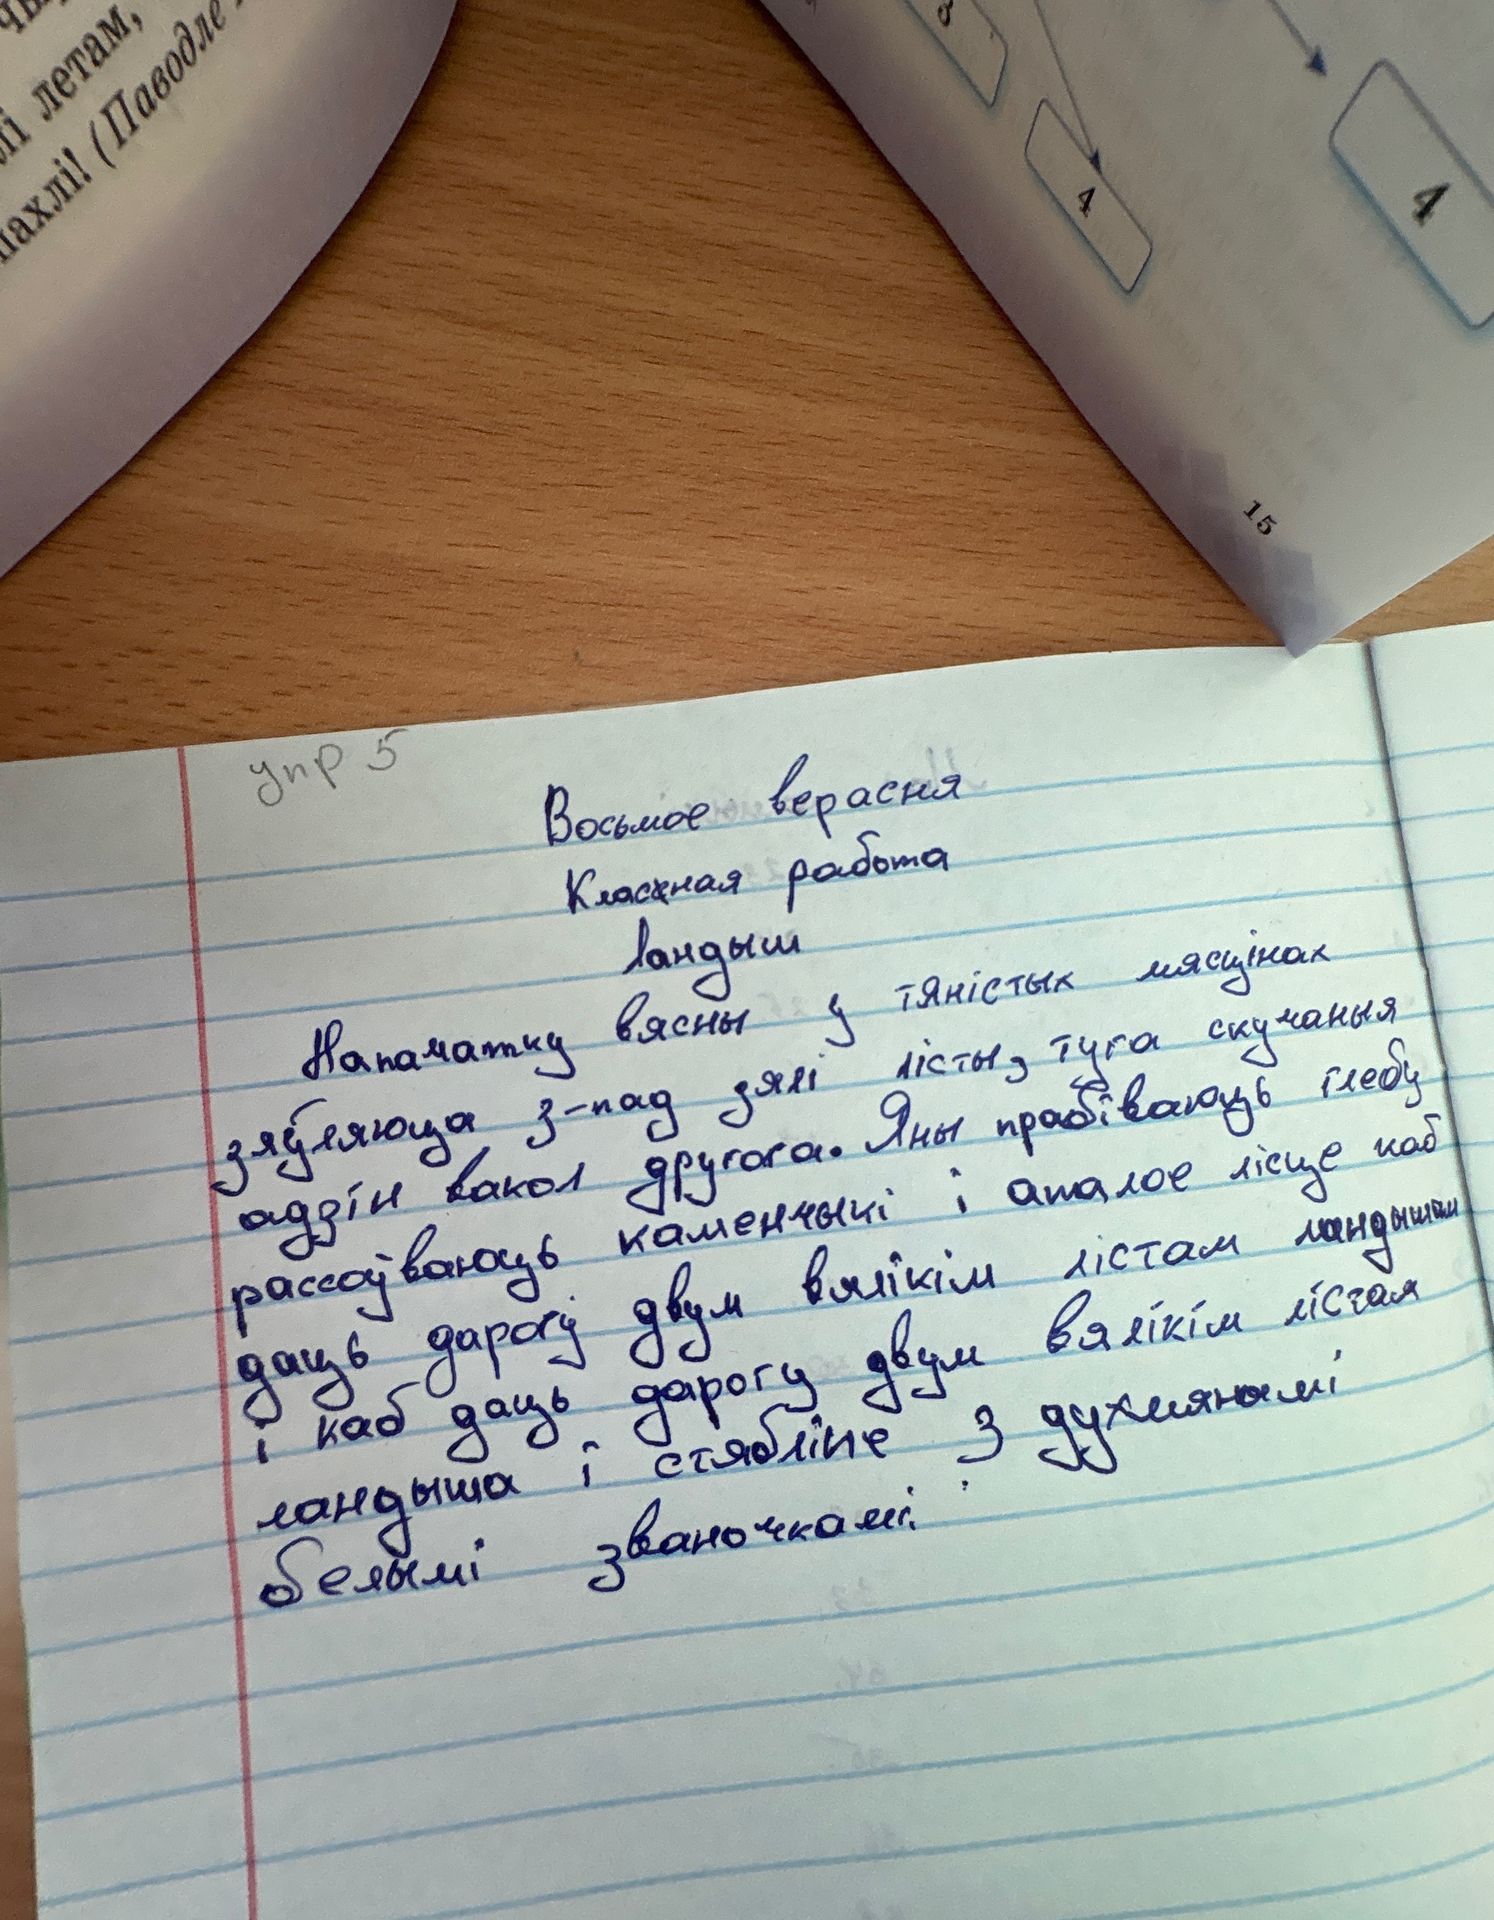 лі летам,
пахлі! (Паводле
3
4
4
15
упр 5
Восьмое верасня
Класная работа
Ландыш
Напачатку вясны у тяністых мясцінах
зяўляюцца з-пад зялі лісты, туга скучаныя
адзін вакол другога. Яны прабіваюць глебу
рассоўваюць каменчыкі і апалое лісце каб
даць дарогу двум вялікім лістам ландышам
і каб даць дарогу двум вялікім лістая
ландыша і стябліне з духмянамі
белымі званочкамі.